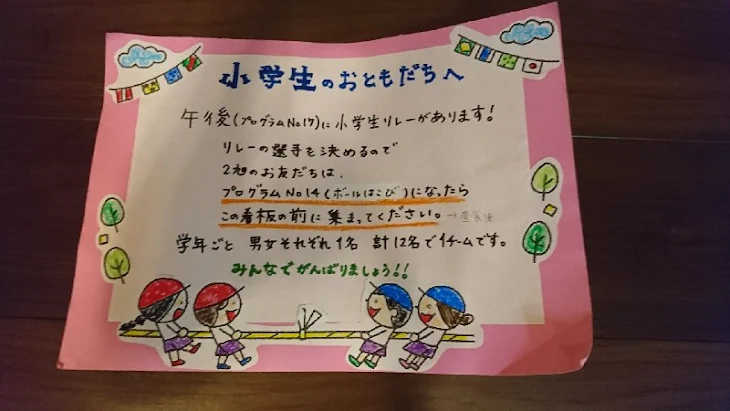 小学生のおともだちへ
午後(プログラムNo17)に小学生リレーがあります!
リレーの選手を決めるので
2旭のお友だちは、
プログラムNo14(ボールはこび)になったら
この看板の前に集まってください。→昼食後
学年ごと 男女それぞれ1名 計12名で1チームです。
みんなでがんばりましょう!!